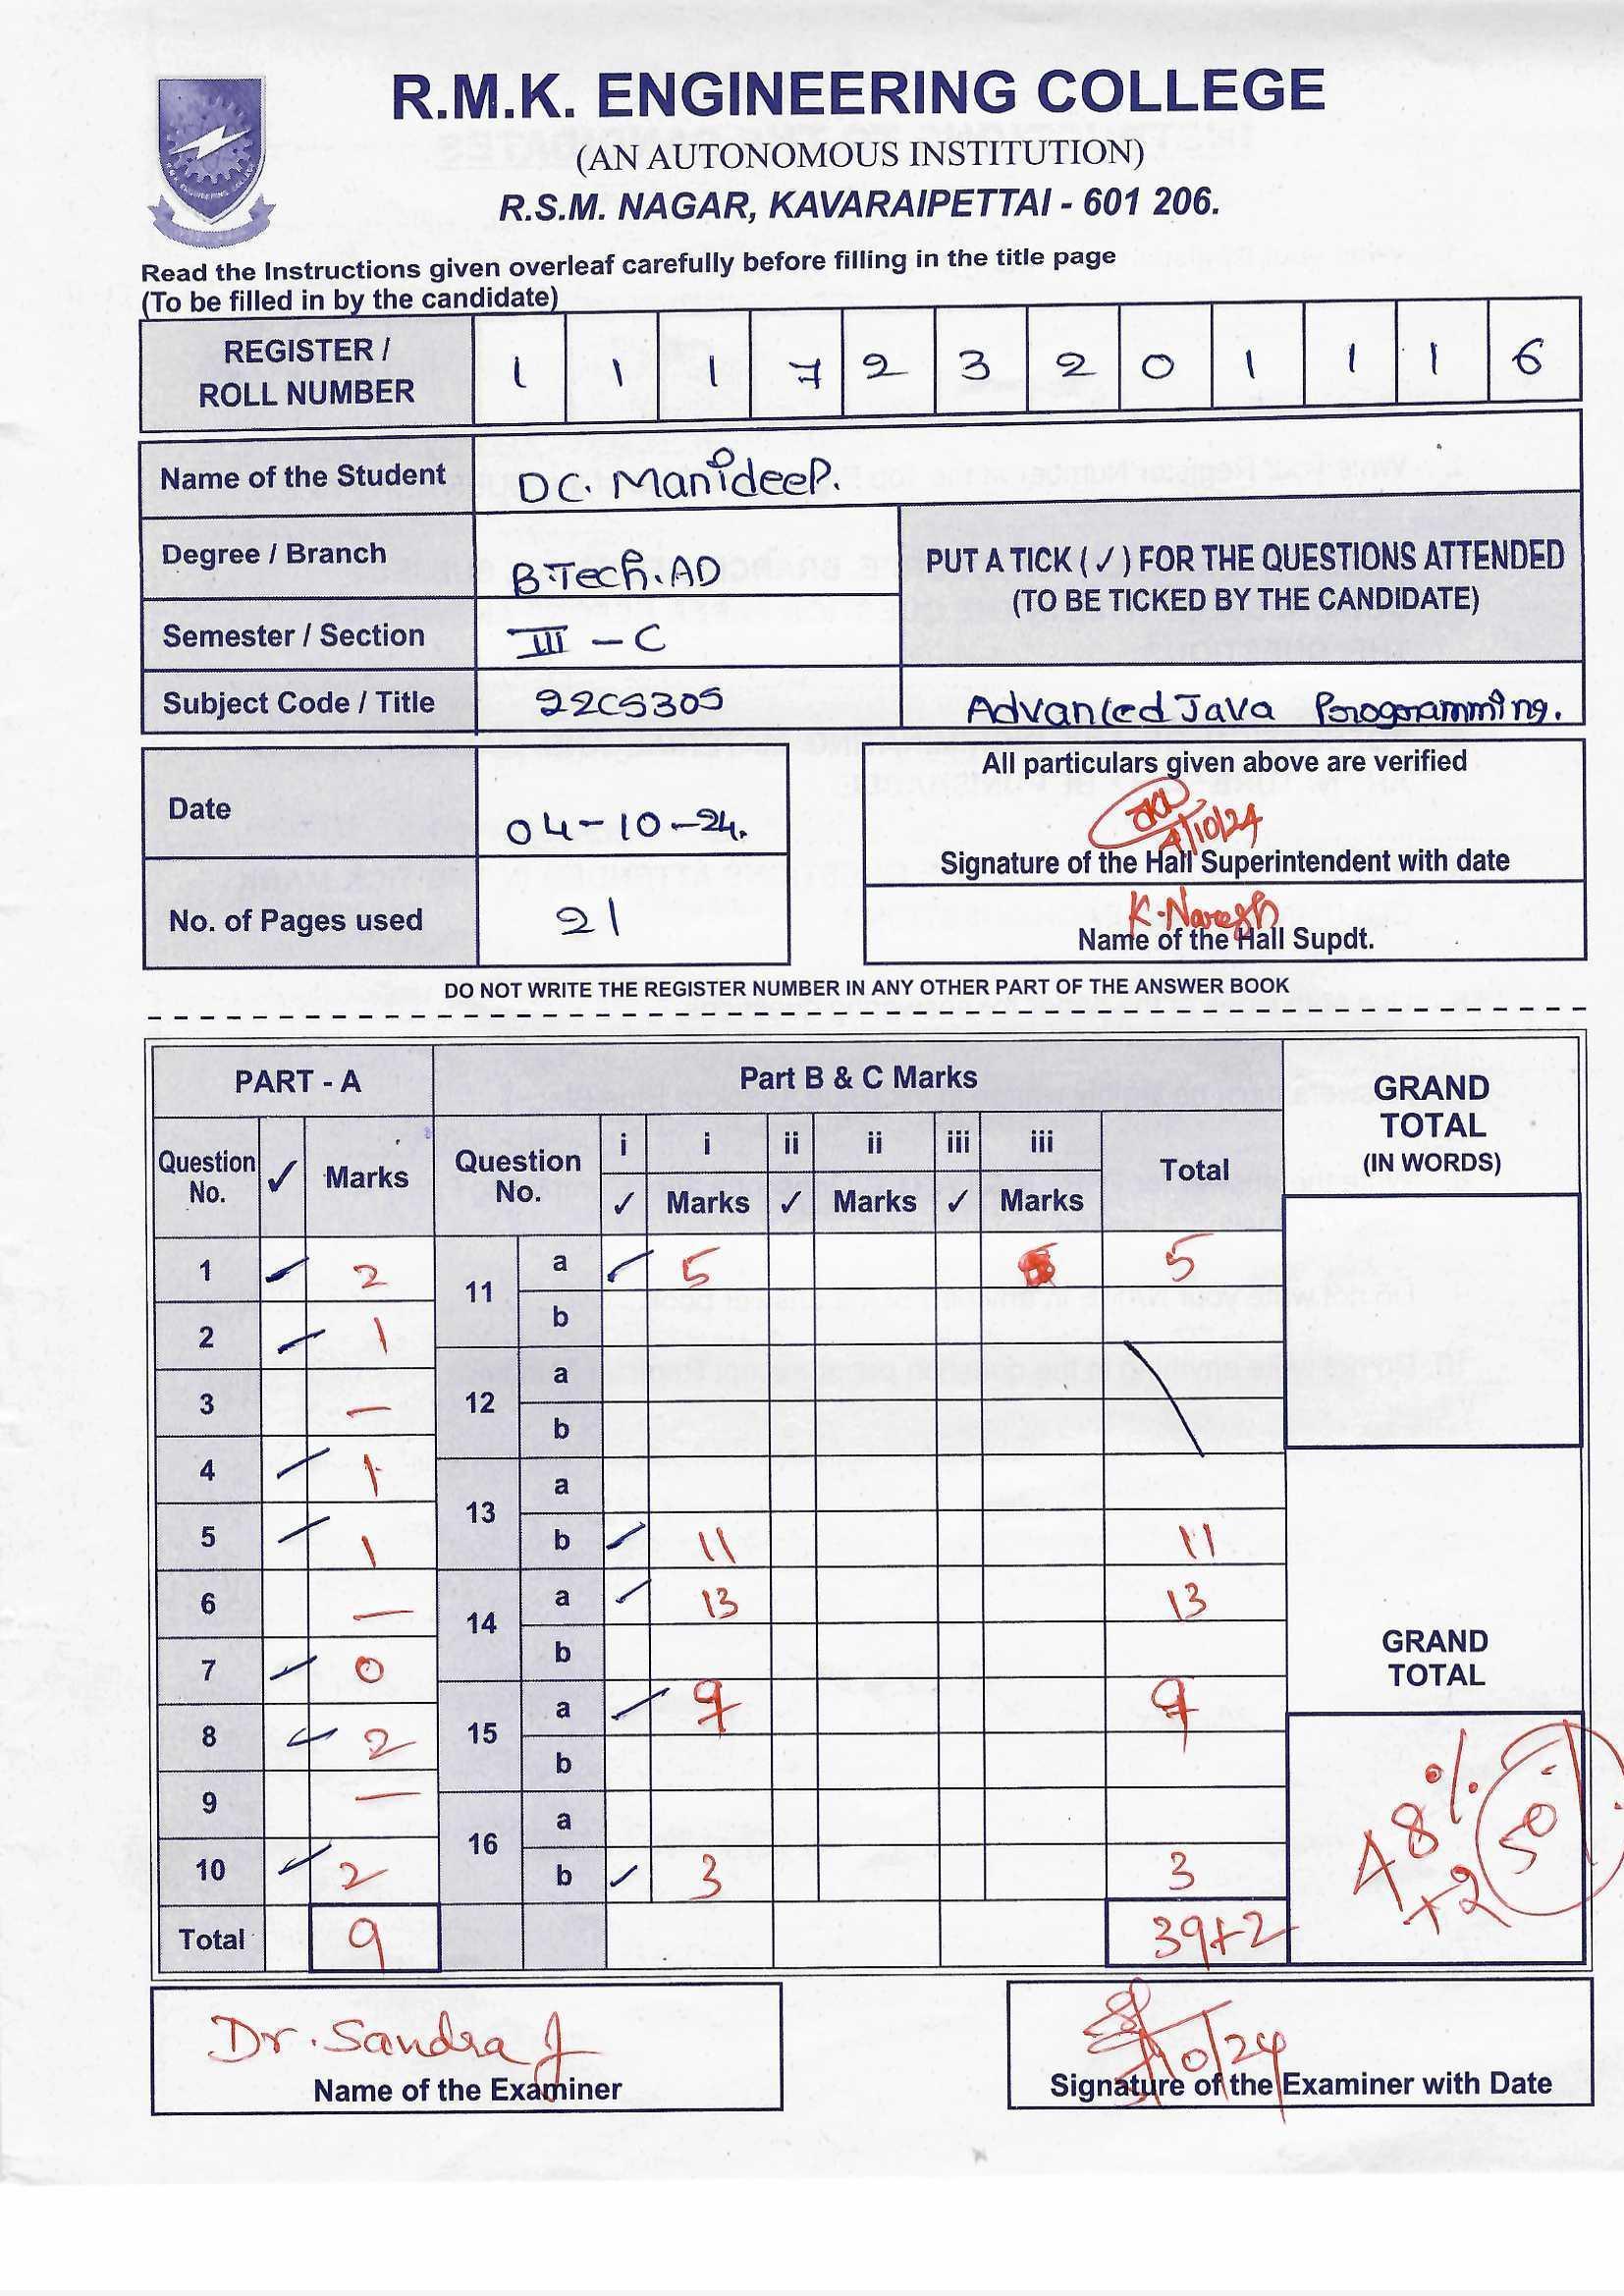 R.M.K. ENGINEERING COLLEGE
(AN AUTONOMOUS INSTITUTION)
R.S.M. NAGAR, KAVARAIPETTAI - 601 206.
Read the Instructions given overleaf carefully before filling in the title page
(To be filled in by the candidate)
REGISTER / ROLL NUMBER 1 1 1 7 2 3 2 0 1 1 1 6
Name of the Student DC. Manideep.
Degree / Branch B.Tech.AD
PUT A TICK ( ✓ ) FOR THE QUESTIONS ATTENDED
(TO BE TICKED BY THE CANDIDATE)
Semester / Section III - C
Subject Code / Title 22CS305 Advanced Java Programming.
Date 04-10-24.
All particulars given above are verified
4/10/24
Signature of the Hall Superintendent with date
No. of Pages used 21
K. Naresh
Name of the Hall Supdt.
DO NOT WRITE THE REGISTER NUMBER IN ANY OTHER PART OF THE ANSWER BOOK
PART - A Part B & C Marks GRAND TOTAL (IN WORDS)
Question No. ✓ Marks Question No. i ✓ i Marks ii ✓ ii Marks iii ✓ iii Marks Total
1 ✓ 2 11 a ✓ 5 5
2 ✓ 1 b
3 — 12 a
4 ✓ 1 b
5 ✓ 1 13 a
b ✓ 11 11
6 — 14 a ✓ 13 13
7 ✓ 0 b
8 ✓ 2 15 a ✓ 9 9
9 — b
10 ✓ 2 16 a
b ✓ 3 3
Total 9 39+2
GRAND TOTAL
48%
+2
50%
Dr. Sandra J
Name of the Examiner
10/24
Signature of the Examiner with Date